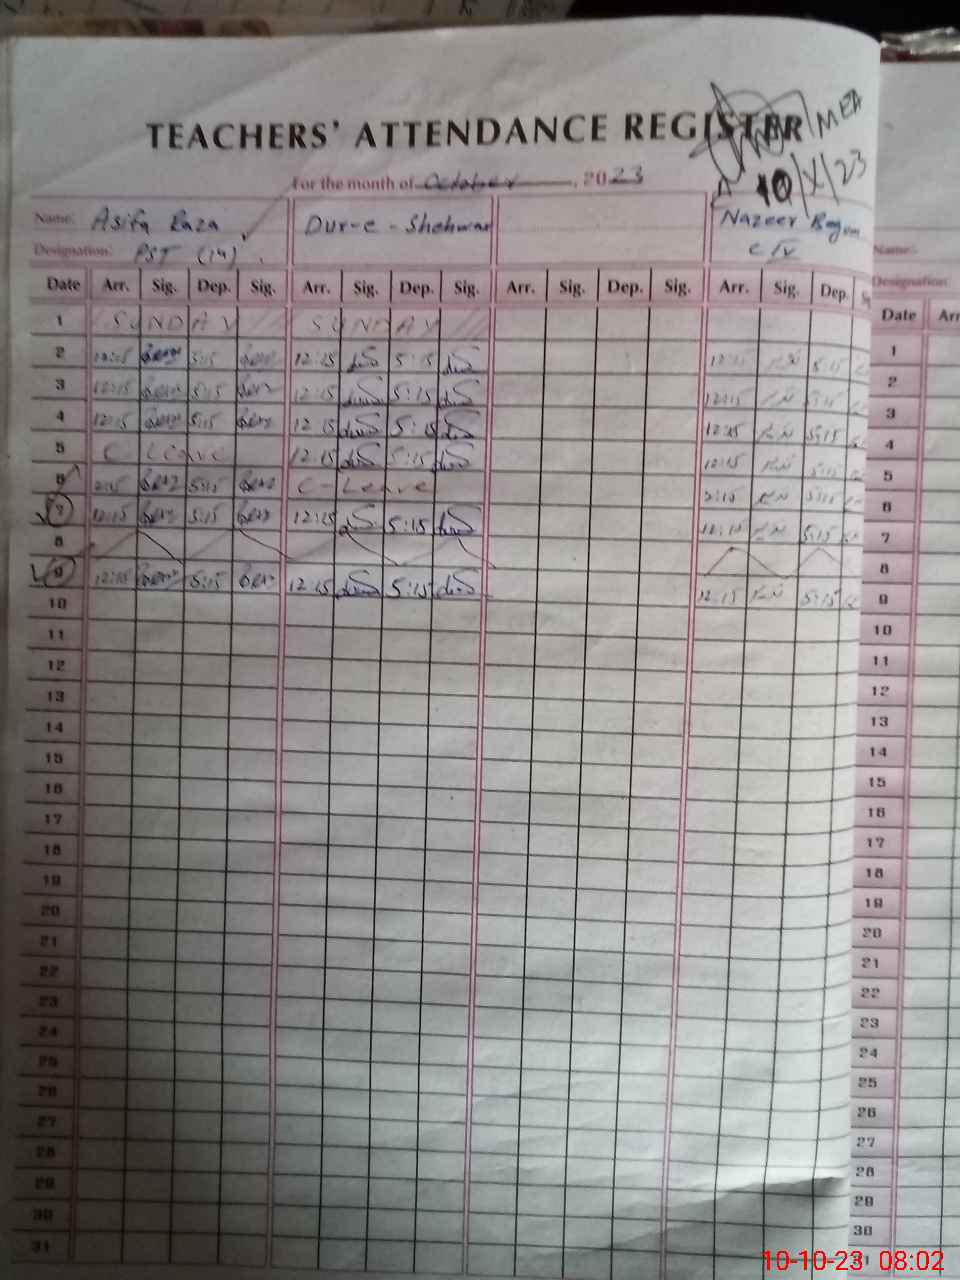 TEACHERS' ATTENDANCE REGISTER
MEA
10/X/23
For the month of October, 2023
Name: Asifa Raza Dur-e-Shehwar Nazeer Begum
Designation: PST (14) C IV
Name:
Designation:
Date Arr. Sig. Dep. Sig. Arr. Sig. Dep. Sig. Arr. Sig. Dep. Sig. Arr. Sig. Dep.
Date Arr
1 SUNDAY SUNDAY
2 12:15 5:15 12:15 5:15 12:15 5:15
3 12:15 5:15 12:15 5:15 12:15 5:15
4 12:15 5:15 12:15 5:15 12:15 5:15
5 C Leave 12:15 5:15 12:15 5:15
6 2:15 5:15 C-Leave 2:15 5:15
7 12:15 5:15 12:15 5:15 12:15 5:15
8
9 12:15 5:15 12:15 5:15 12:15 5:15
10
11
12
13
14
15
16
17
18
19
20
21
22
23
24
25
26
27
28
29
30
31
1
2
3
4
5
6
7
8
9
10
11
12
13
14
15
16
17
18
19
20
21
22
23
24
25
26
27
28
29
30
31
10-10-23 08:02